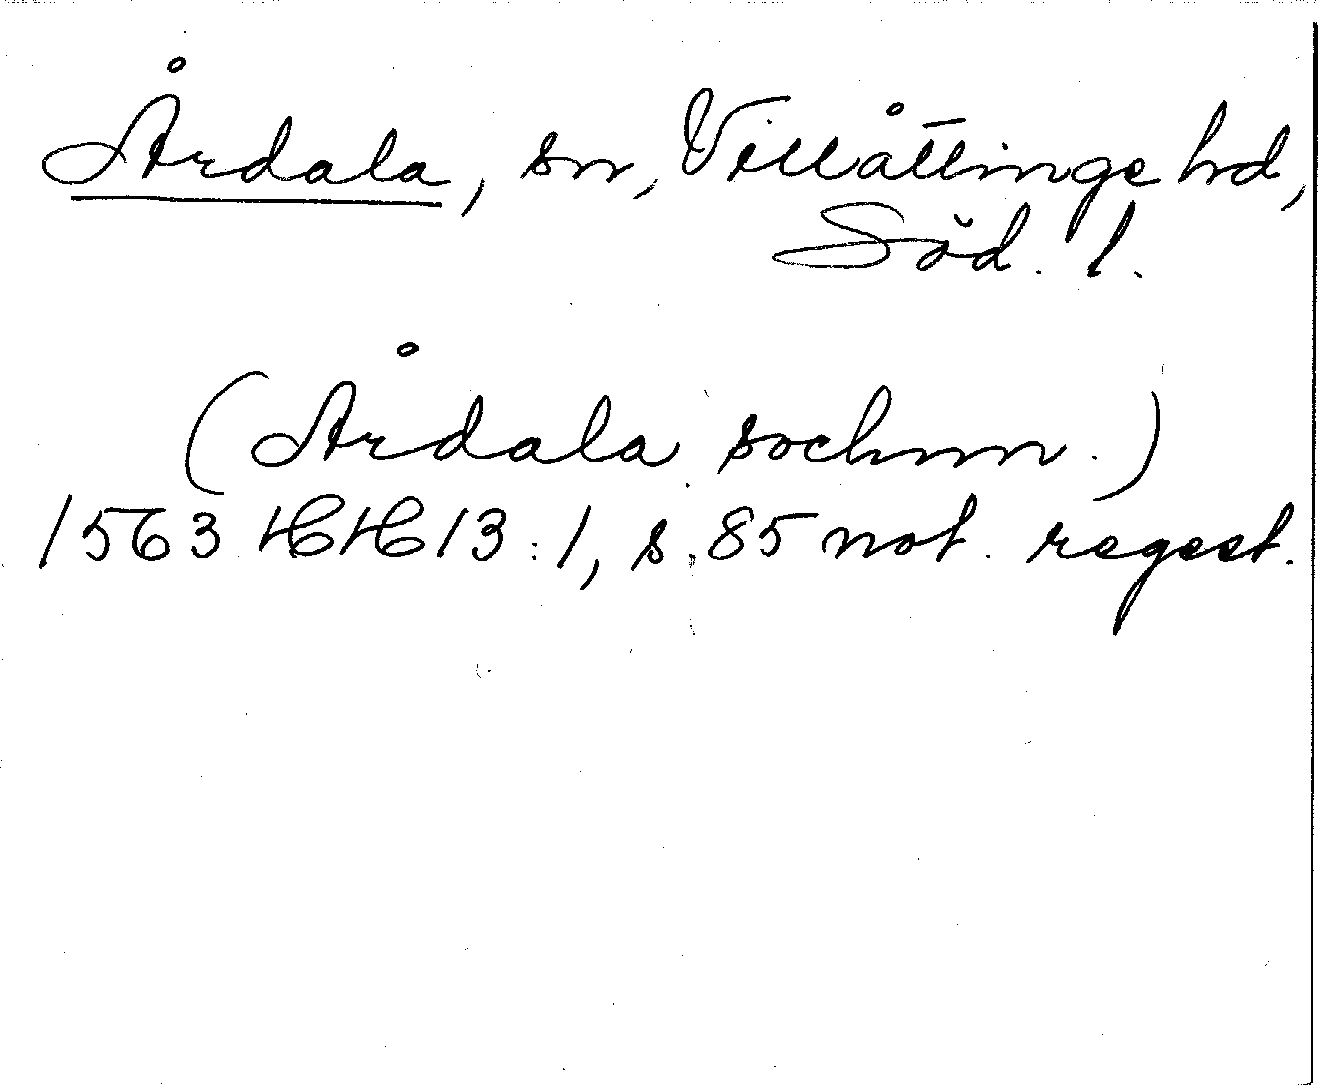 Årdala, sn, Villåttinge hd,
Söd. l.
(Årdala sochnn.)
1563 HH 13:1, s. 85 not. regest.